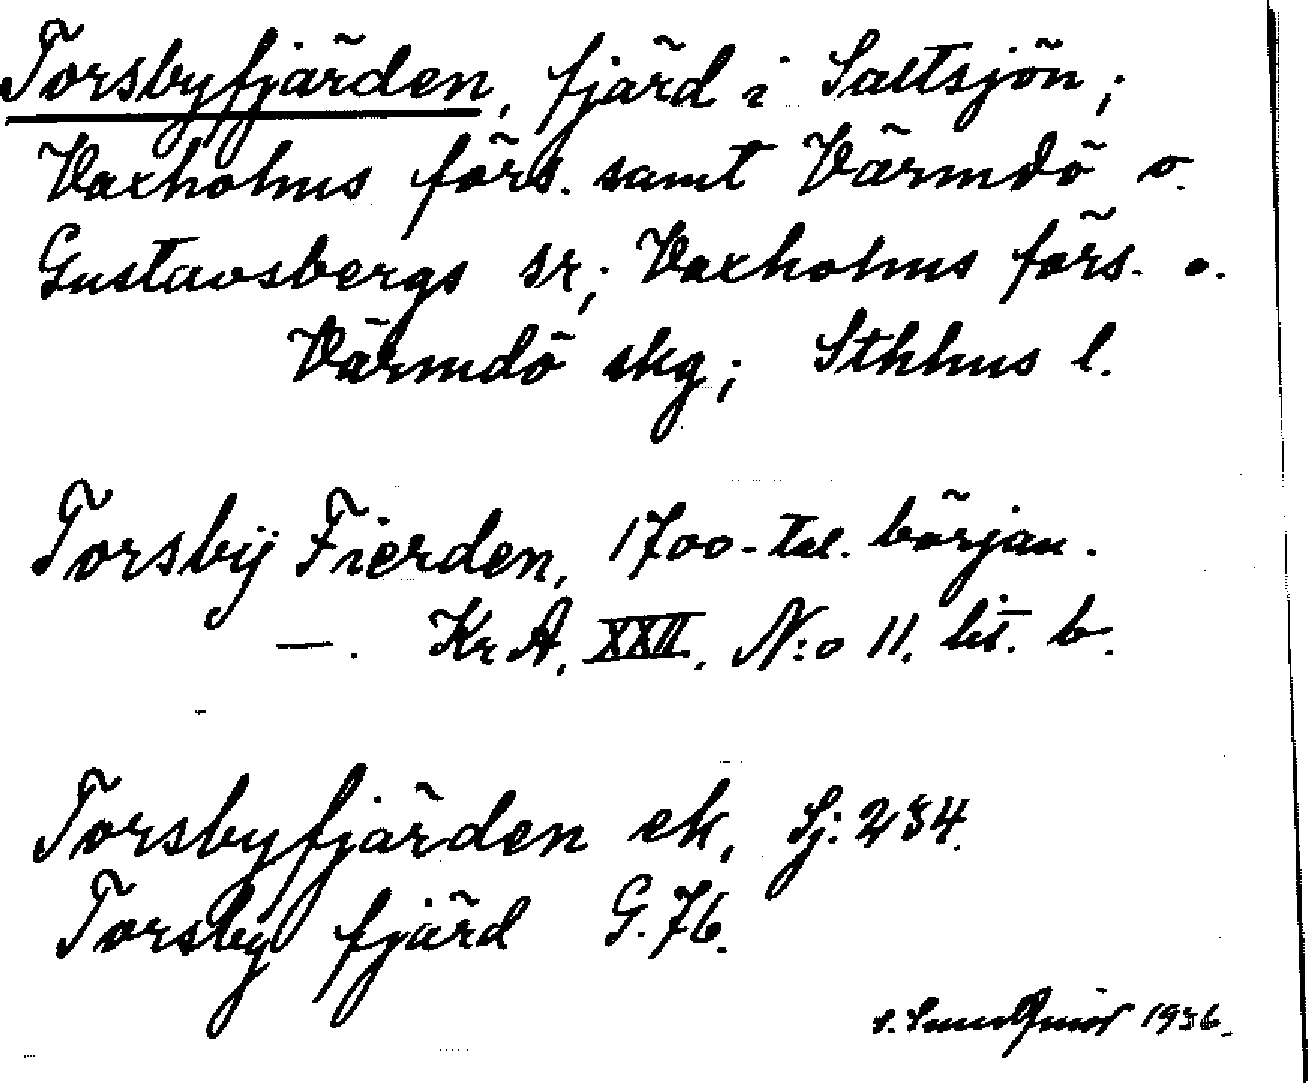 Torsbyfjärden, fjärd i Saltsjön;
Vaxholms förs. samt Värmdö o.
Gustavsbergs sr; Vaxholms förs. o.
Värmdö skg; Sthlms l.
Torsbÿ Fierden, 1700-tal. början.
—. Kr A, XXII. N:o 11. lit. b.
Torsbyfjärden ek, Sj: 234.
Torsby fjärd G. 76.
1936.